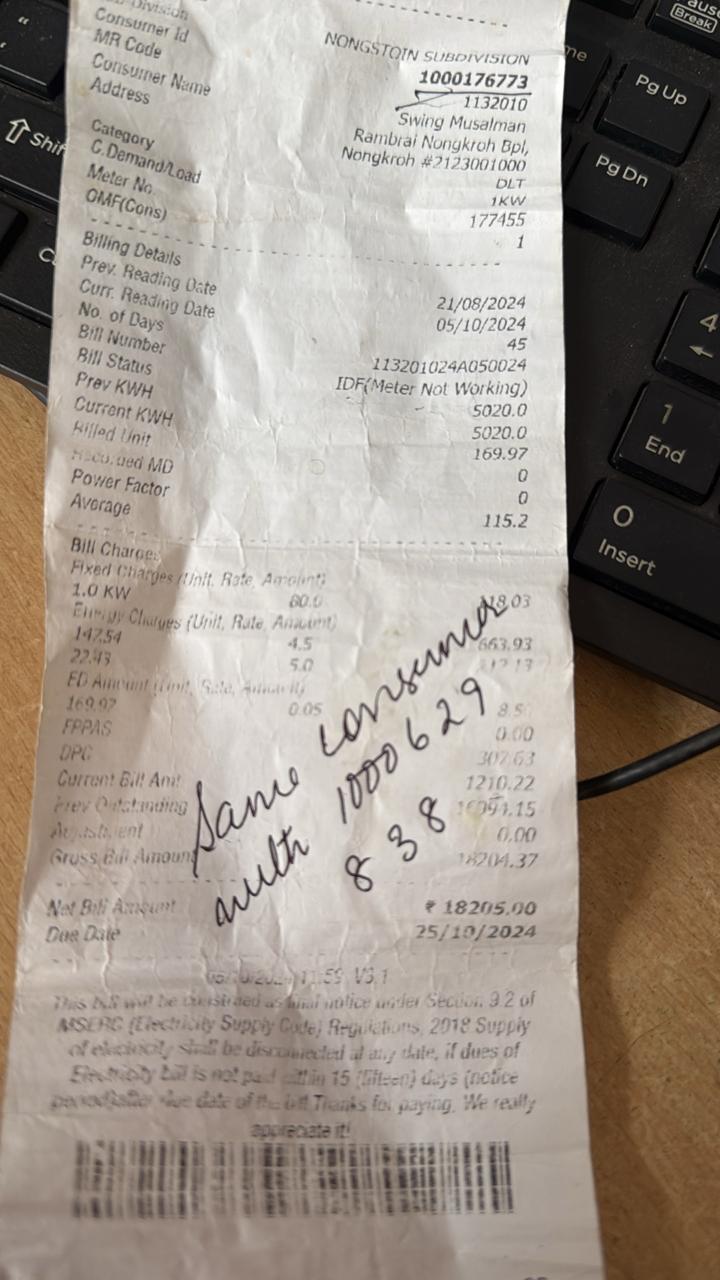 Division
Consumer Id
NONGSTOIN SUBDIVISION
MR Code 1000176773
Consumer Name 1132010
Address Swing Musalman
Rambrai Nongkroh Bpl,
Nongkroh #2123001000
Category DLT
C.Demand/Load 1KW
Meter No. 177455
OMF(Cons) 1
Billing Details
Prev. Reading Date 21/08/2024
Curr. Reading Date 05/10/2024
No. of Days 45
Bill Number 113201024A050024
Bill Status IDF(Meter Not Working)
Prev KWH 5020.0
Current KWH 5020.0
Billed Unit 169.97
MD 0
Power Factor 0
Average 115.2
Bill Charges
Fixed Charges (Unit, Rate, Amount)
1.0 KW 80.0
Energy Charges (Unit, Rate, Amount)
147.54 4.5 663.93
22.43 5.0
ED Amount (Unit, Rate, Amount)
169.97 0.05
FPPAS 0.00
DPC 307.63
Current Bill Amt 1210.22
Prev Outstanding
Adjustment 0.00
Gross Bill Amount 18204.37
Same consumer
with 1000629
838
Net Bill Amount ₹ 18205.00
Due Date 25/10/2024
05/10/2024 11:59 V3.1
This bill will be construed as final notice under Section 9.2 of
MSERC (Electricity Supply Code) Regulations, 2018 Supply
of electricity shall be disconnected at any date, if dues of
Electricity bill is not paid within 15 (fifteen) days (notice
period)after due date of the bill Thanks for paying. We really
appreciate it!
Shif
Pause
Break
me
Pg Up
Pg Dn
4
1
End
0
Insert